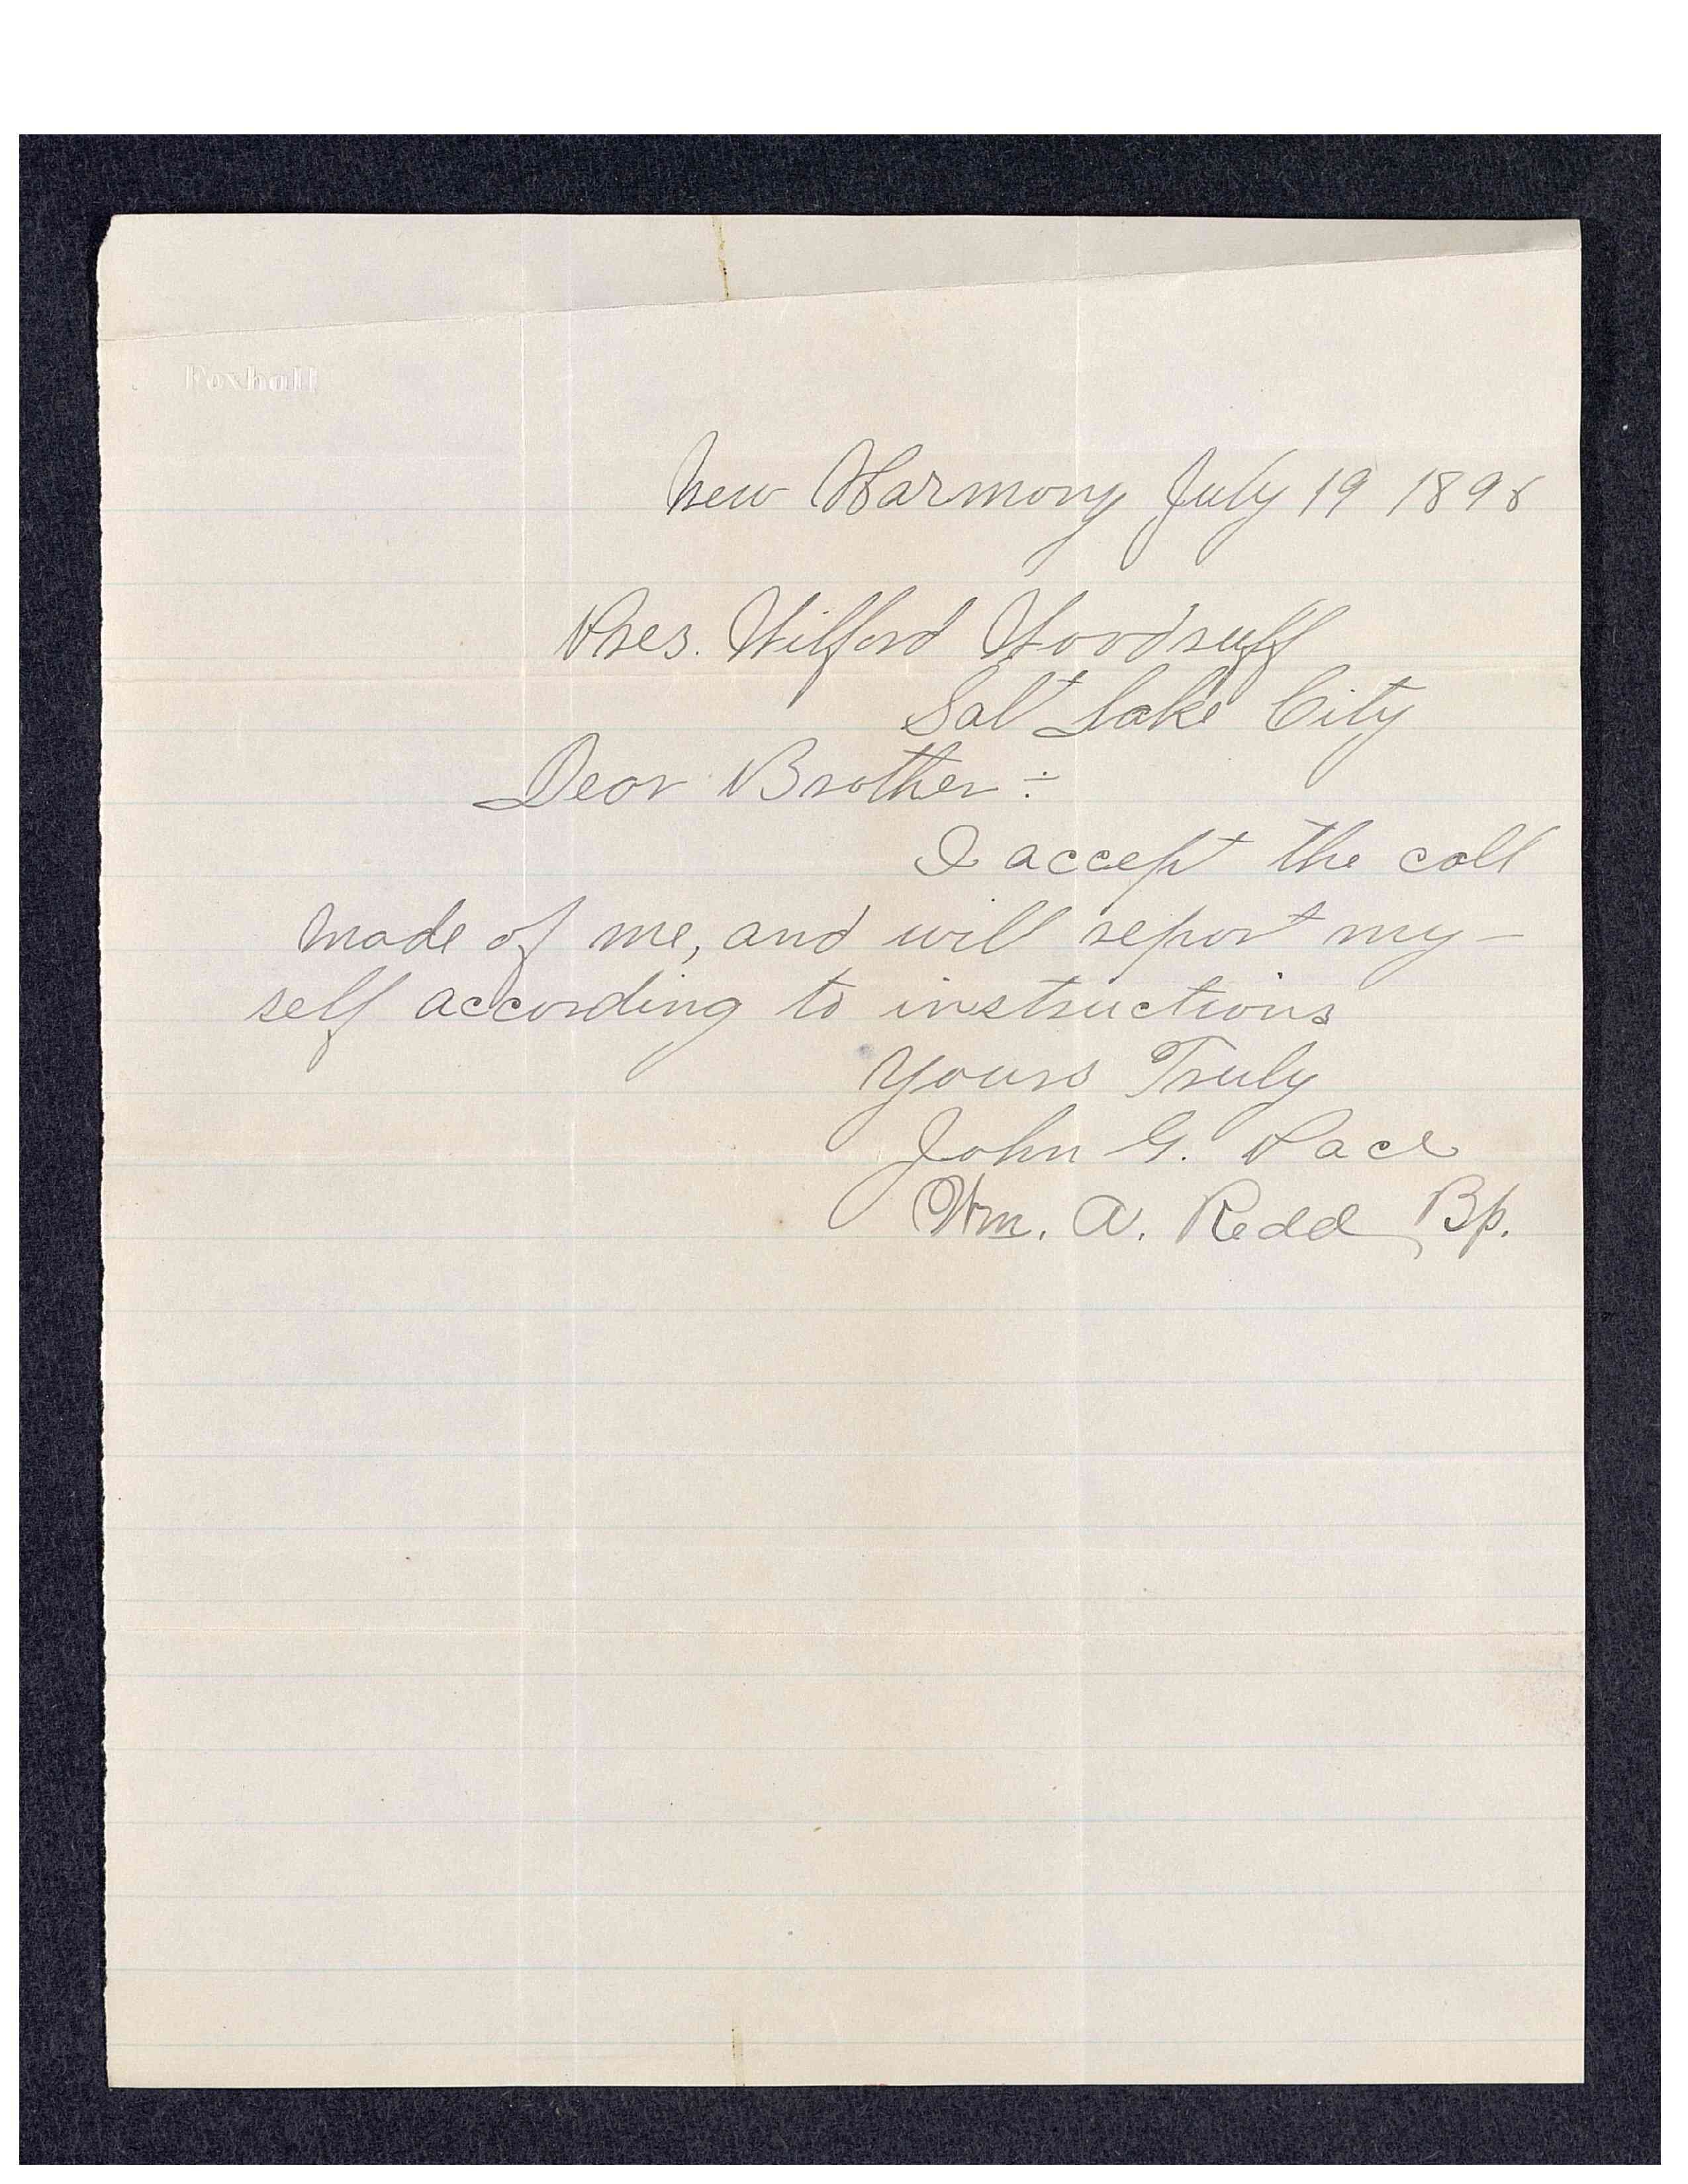 Foxhall
New Harmony July 19 1898
Pres. Wilford Woodruff
Salt Lake City
Dear Brother :-
I accept the call
made of me, and will report my-
self according to instructions
Yours Truly
John G. Pace
Wm. A. Redd Bp.